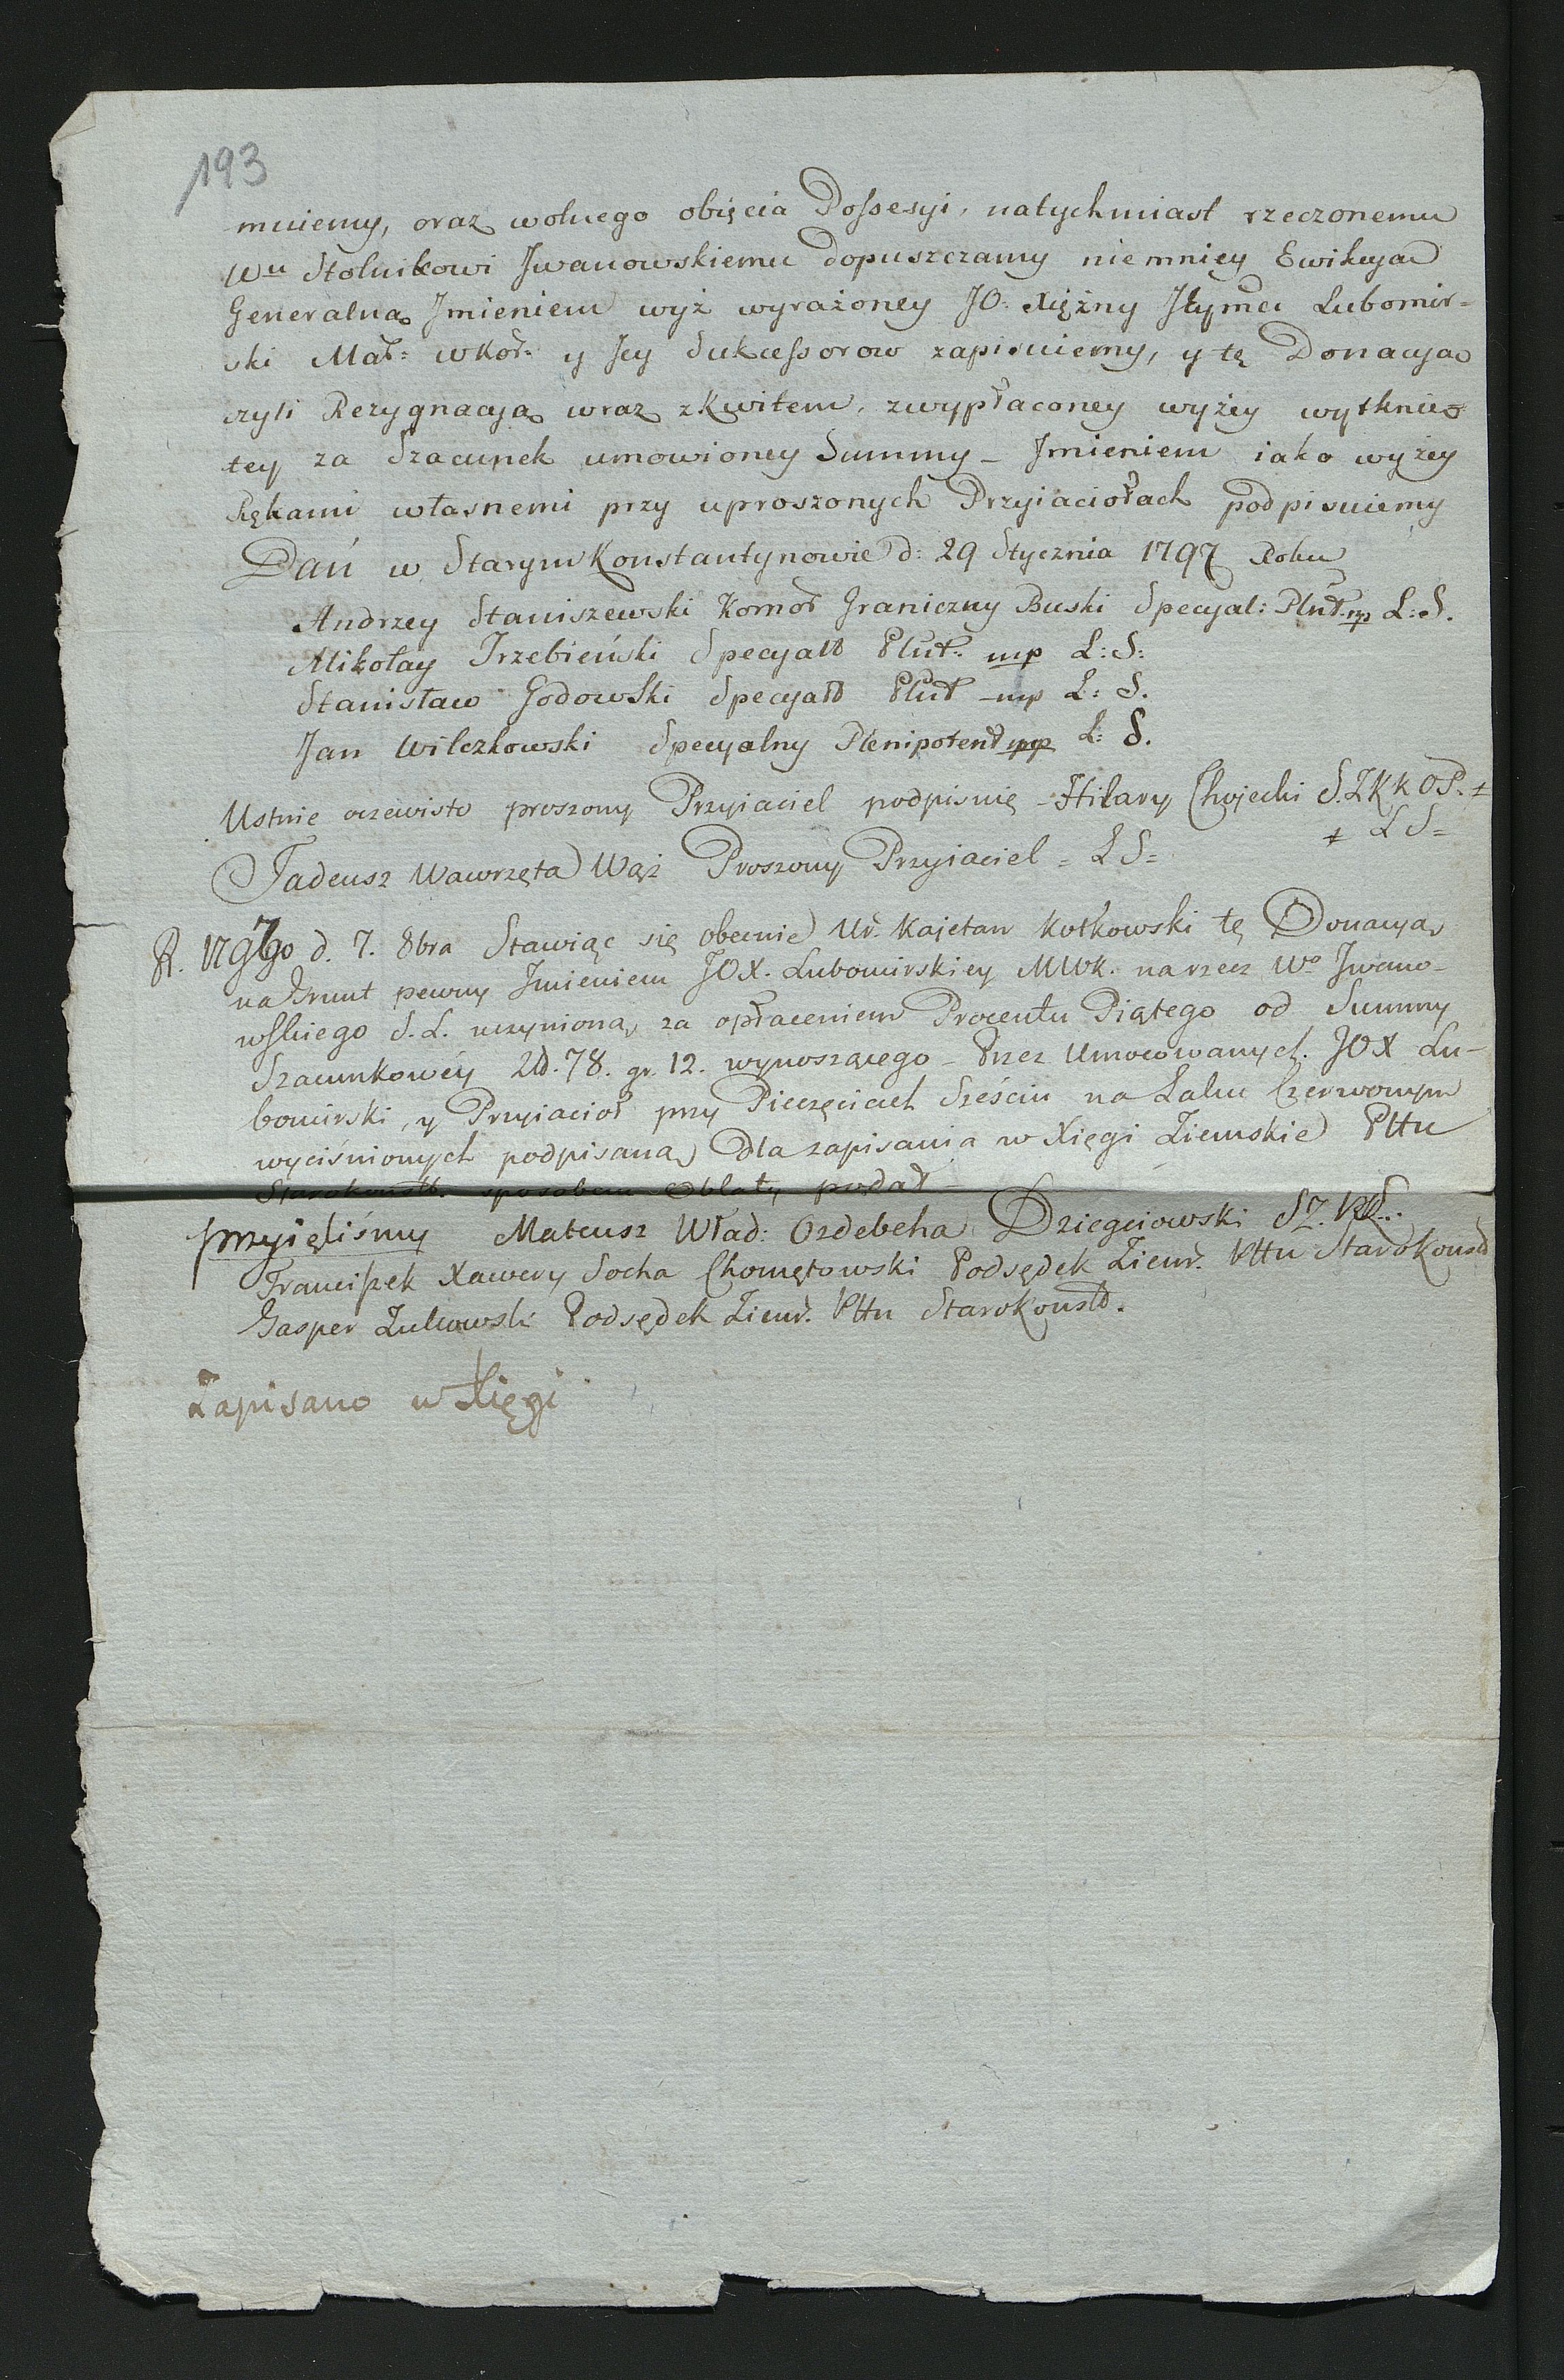 193
muiemy, oraz wolnego obięcia Possesyi, natychmiast rzeczonemu
Wu Stolnikowi Jwanowskiemu dopuszczamy niemniey Ewikcyą
Generalną Jmieniem wyż wyrażoney JO. Xiężny Jłymci Lubomir=
ski Mał= wKoł= y Jey Sukcessorow zapisuiemy, y tę Donacyą
czyli Rezygnacyą wraz zKwitem, zwypłaconey wyżey wytknię=
tey za Szacunek umowioney Summy _ Jmieniem iako wyżey
Rękami własnemi przy uproszonych Przyiaciołach podpisuiemy
Dań w Starym Konstantynowie d: 29 Stycznia 1797 Roku
Andrzey Staniszewski Komor Graniczny Buski Specyal: Plnt. mp L:S.
Mikołay Trzebieński Specyal Plnt. mp L:S:
Stanisław Godowski Specyal Plnt mp L:S.
Jan Wilczkowski Specyalny Plenipotent mp L:S.
Ustnie oczewisto proszony Przyiaciel podpisuię _ Hilary Chojecki S.ZKKOP. ±
± LS=
Tadeusz Wawrzęta Wąż Proszony Przyiaciel = LS=
R. 1797go d. 7. 8bra Stawiąc się obecnie Ur. Kajetan Kotkowski tę Donacyą
na Grunt pewny Jmieniem JOX. Lubomirskiey MWK. na rzecz Wo Jwano-
wskiego S.L. uczynioną, za opłaceniem Procentu Piątego od Summy
Szacunkowéy Zł. 78. gr. 12. wynoszącego _ Przez Umocowanych JOX Lu-
bomirski, y Przyiacioł przy Pieczęciach Sześciu na Laku Czerwonym
wyciśnionych podpisaną dla zapisania w Xięgi Ziemskie Pttu
Starokonstt. sposobem Oblaty podał _
przyięliśmy Mateusz Wład: Ozdebcha Dzięgciowski SZ. PS.
Franciszek Xawery Socha Chomętowski Podsędek Ziem. Pttu Starokonst
Gasper Zukowski Podsędek Ziem. Pttu Starokonst.
Zapisano w Xięgi